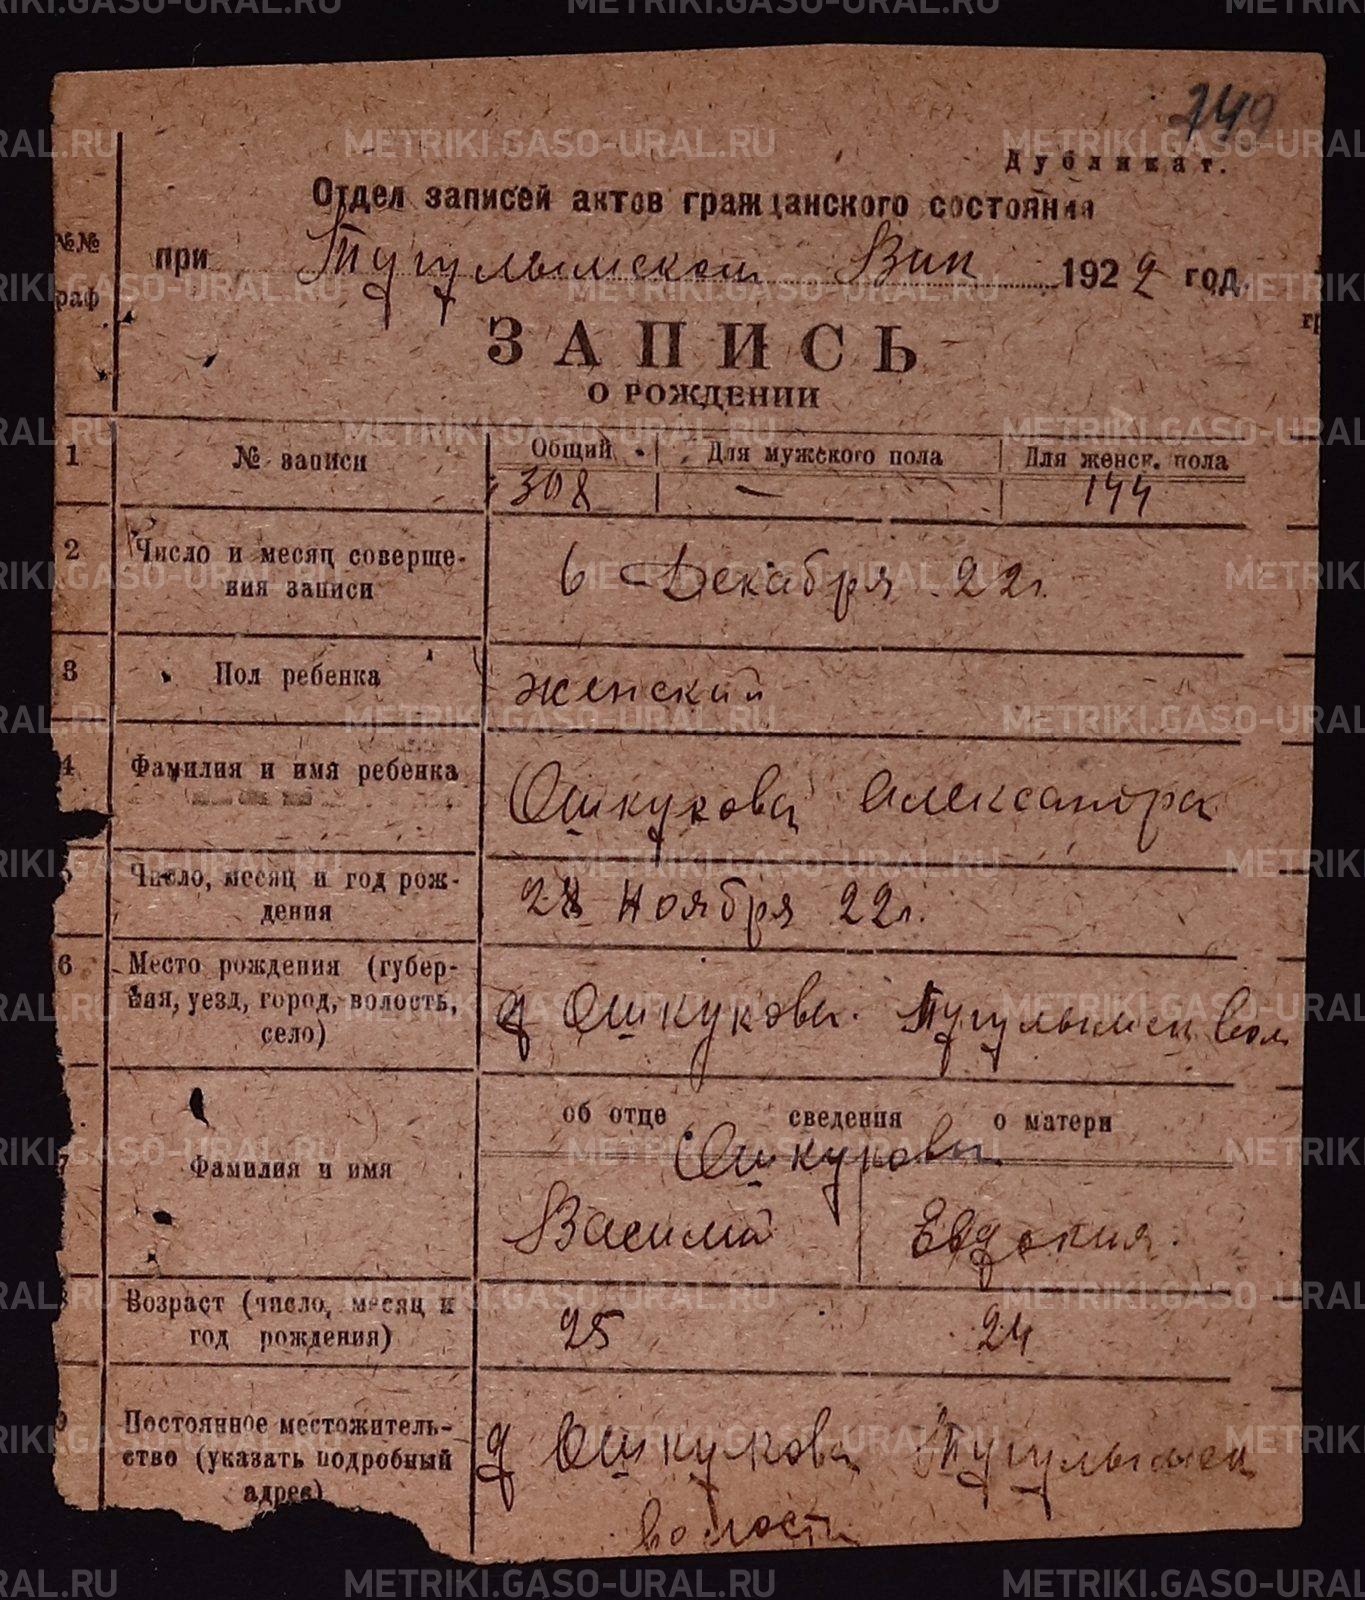 749
Дубликат.
Отдел записей актов гражданского состояния
№№ граф
при Тугулымском Вик 1922 год.
ЗАПИСЬ
О РОЖДЕНИИ
1 № записи Общий Для мужского пола Для женск. пола
308 — 144
2 Число и месяц соверше-
ния записи
6 Декабря 22 г.
3 Пол ребенка женский
4 Фамилия и имя ребенка Ошкукова Александра
5 Число, месяц и год рож-
дения
Ноября 22 г.
6 Место рождения (губер-
ния, уезд, город, волость,
село)
д Ошкукова. Тугулымск вол
об отце сведения о матери
7 Фамилия и имя
Ошкуковы
Василий Евдокия.
8 Возраст (число, месяц и
год рождения)
25 24
9 Постоянное местожитель-
ство (указать подробный
адрес)
д Ошкукова Тугулымск
волости
METRIKI.GASO-URAL.RU